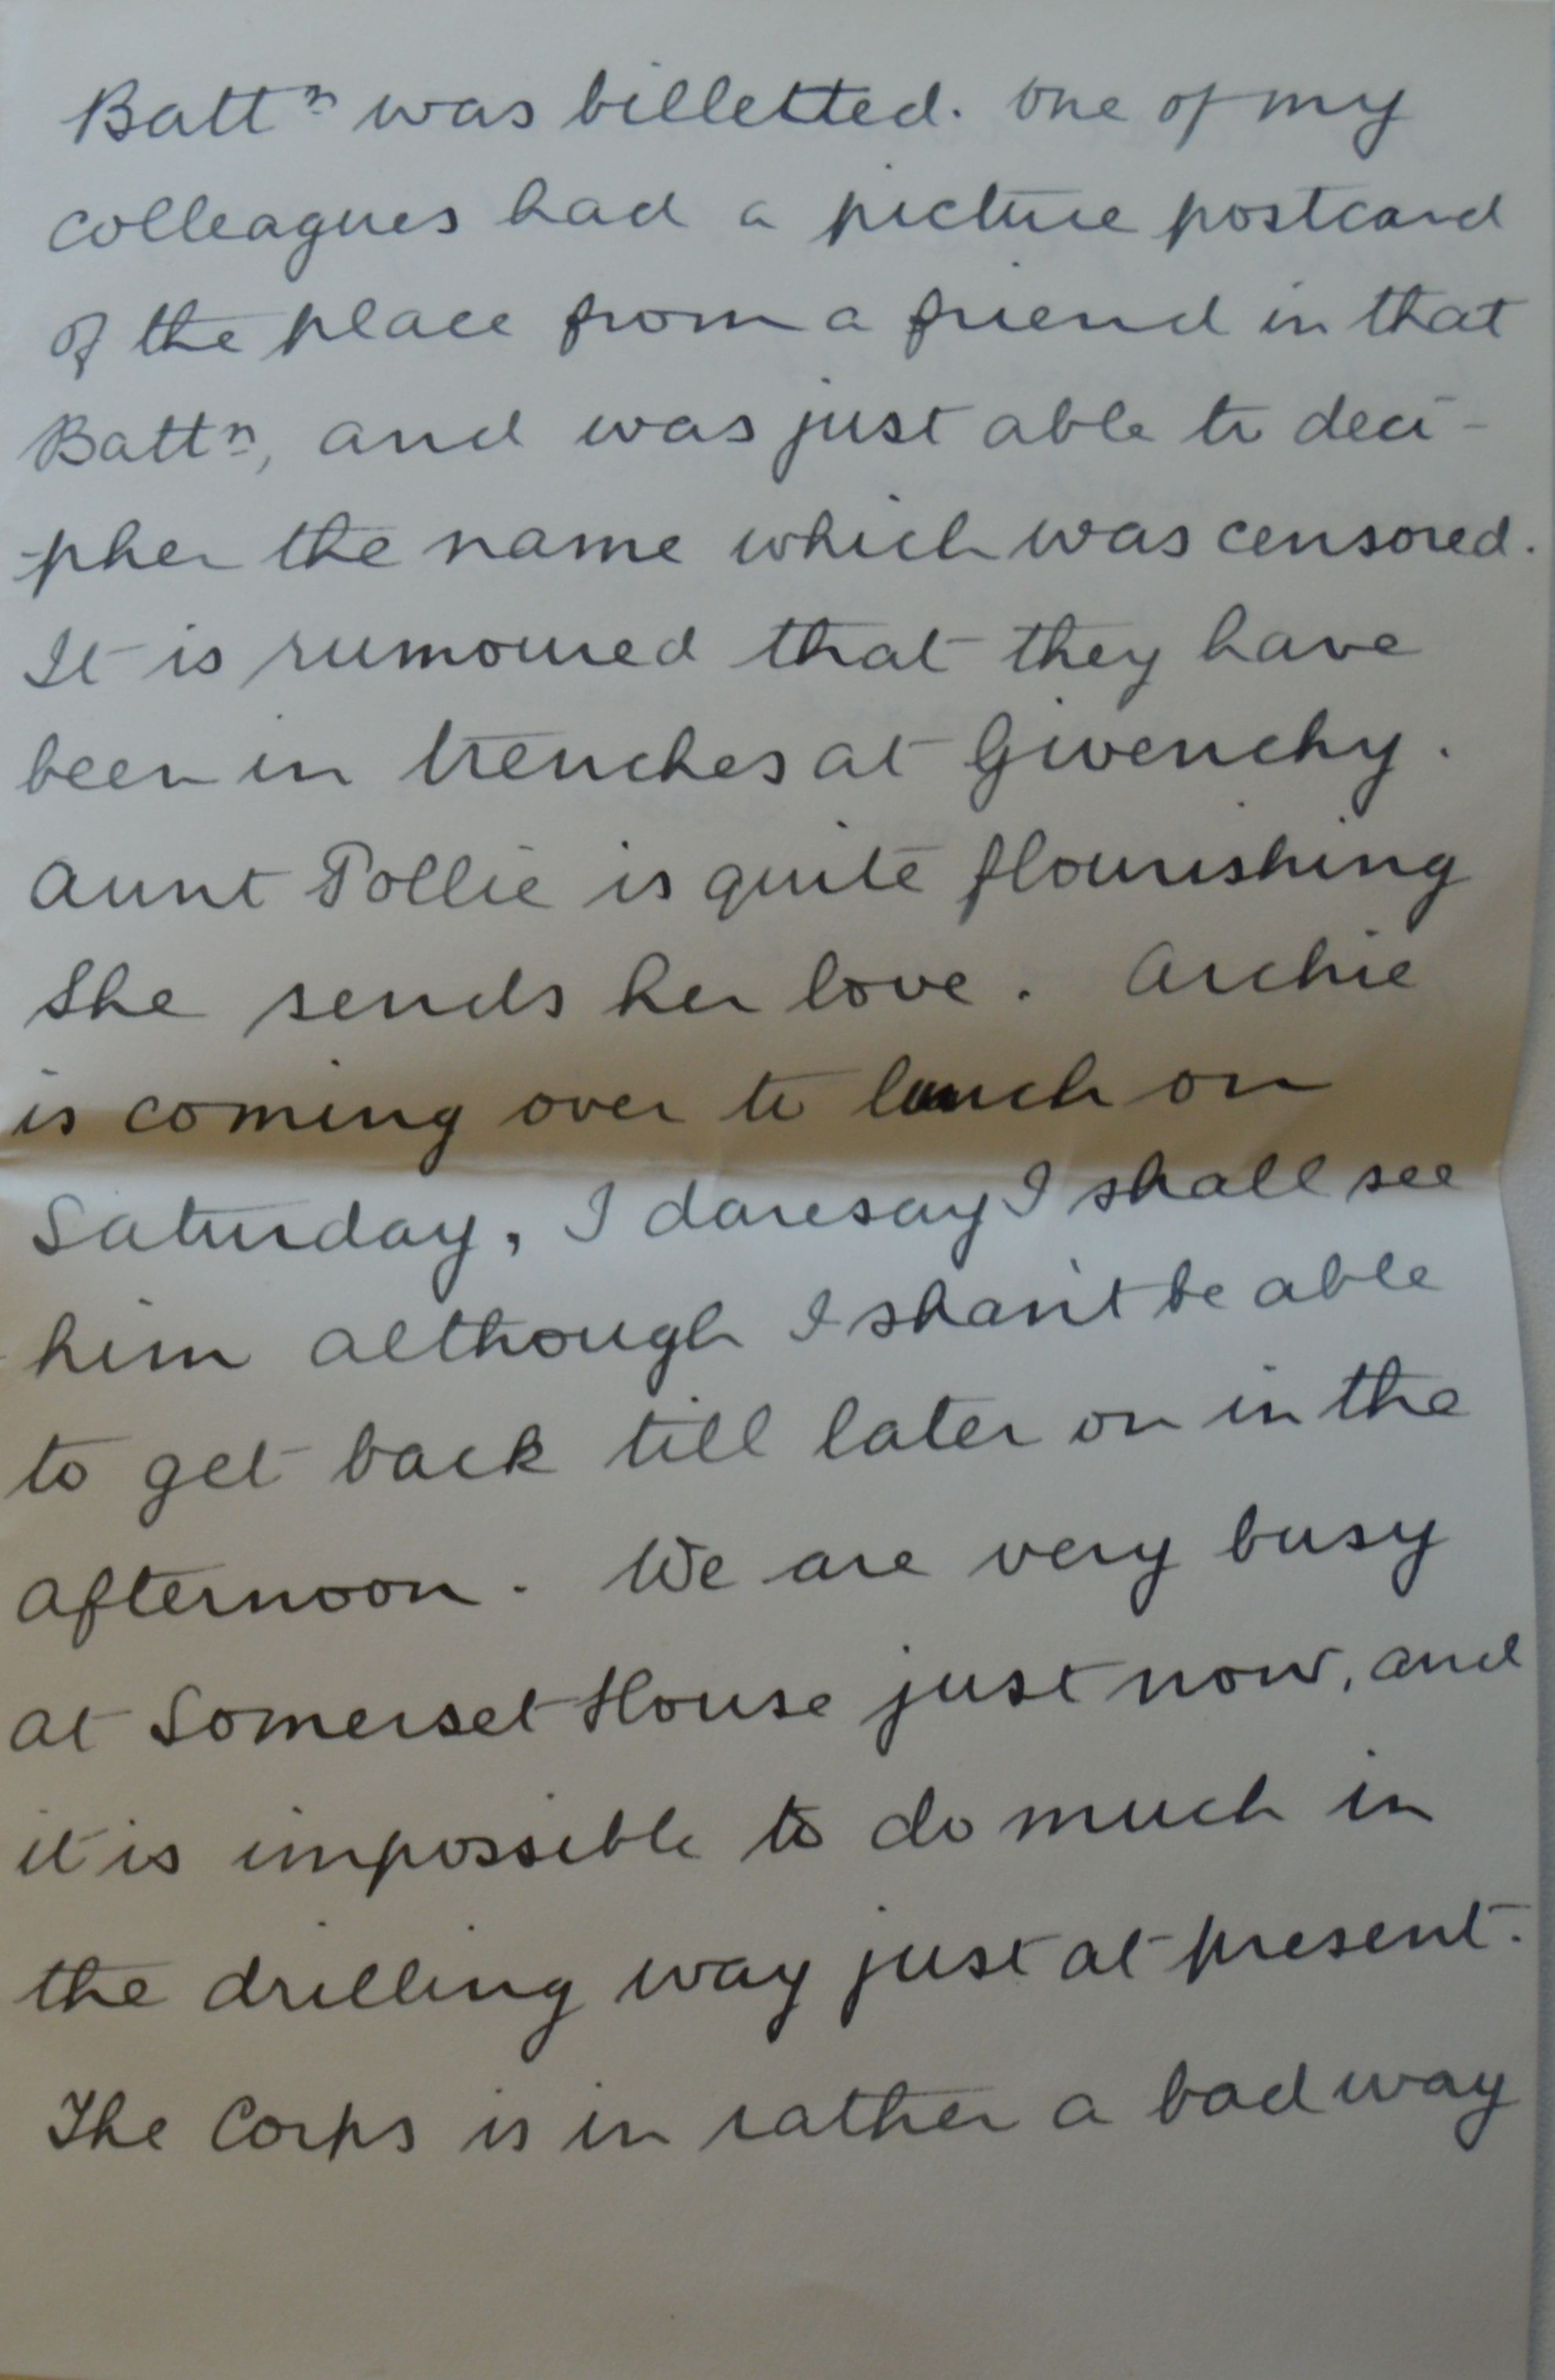 Battn was billetted. One of my
colleagues had a picture postcard
of the place from a friend in that
Battn, and was just able to deci-
-pher the name which was censored.
It is rumoured that they have
been in trenches at Givenchy.
Aunt Pollie is quite flourishing
She sends her love. Archie
is coming over to lunch on
Saturday, I daresay I shall see
him although I shan't be able
to get back till later on in the
afternoon. We are very busy
at Somerset House just now, and
it is impossible to do much in
the drilling way just at present.
The Corps is in rather a bad way